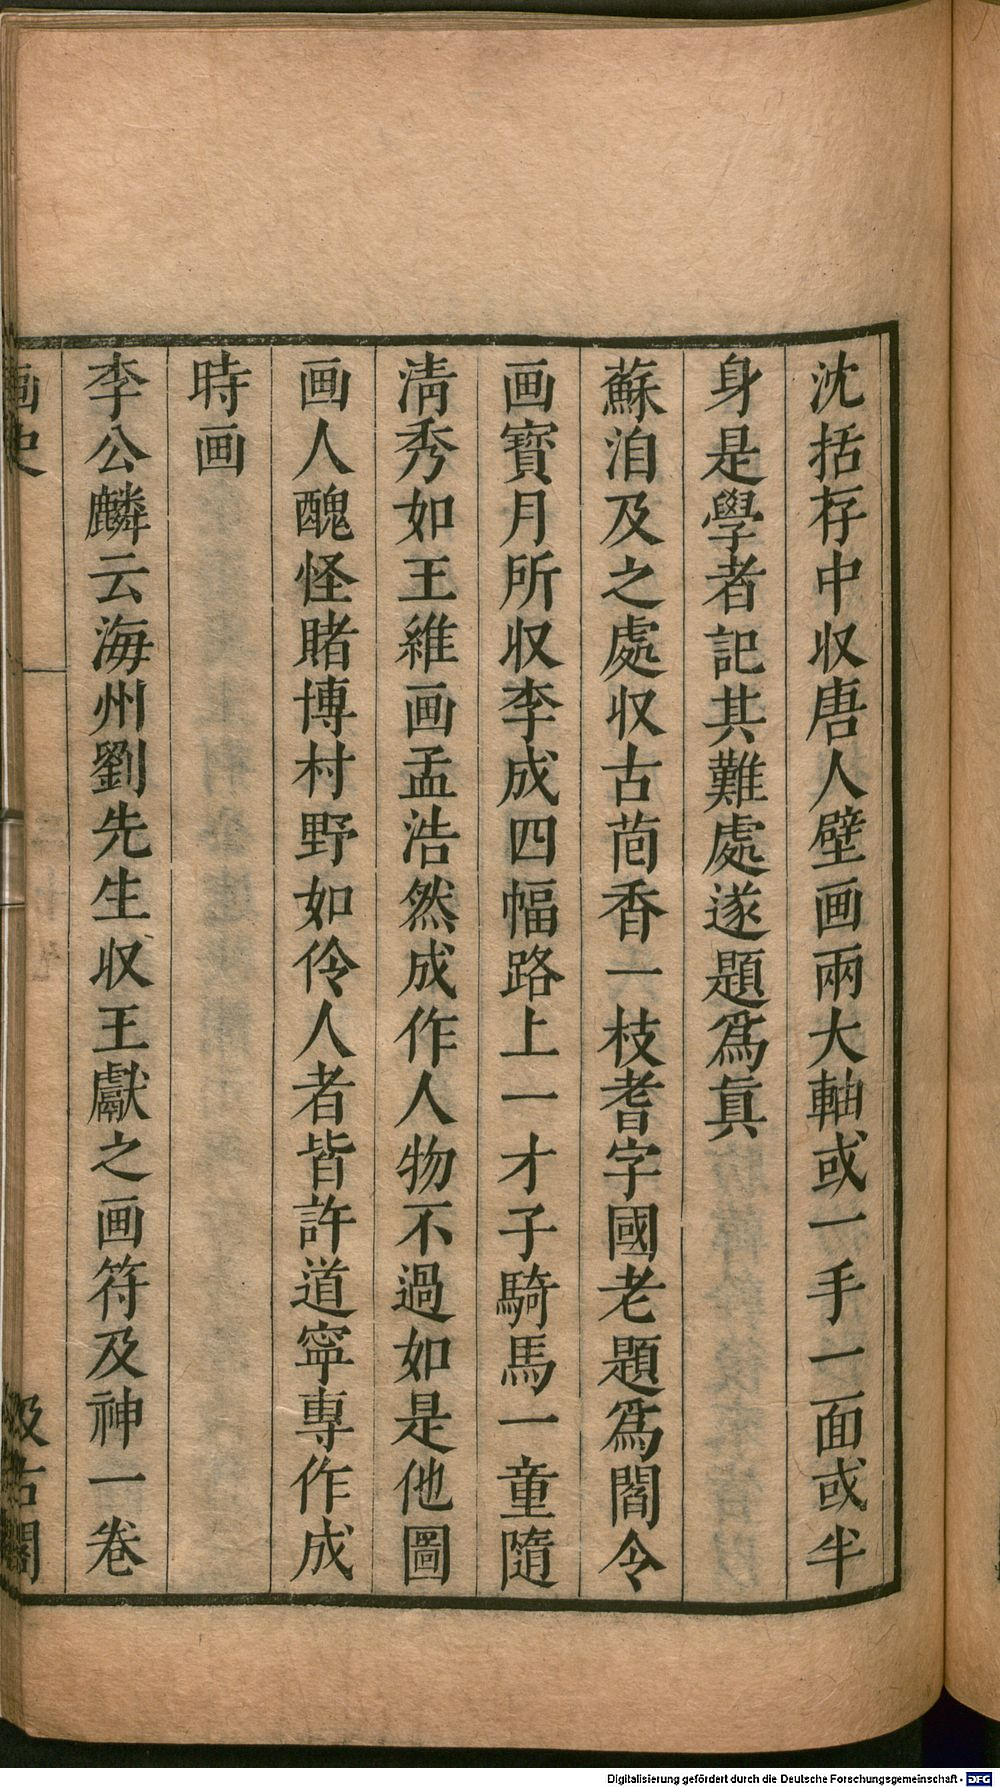 沈括存中収唐人壁画兩大軸或一手一面或半
身是學者記其難處遂題爲眞
蘇洎及之處収古茴香一枝耆字國老題爲閻令
画寳月所収李成四幅路上一才子騎馬一童隨
清秀如王維画孟浩然成作人物不過如是他圖
画人醜怪賭博村野如伶人者皆許道寧專作成
時画
李公麟云海州劉先生収王獻之画符及神一卷
画史
汲古閣
Digitalisierung gefördert durch die Deutsche Forschungsgemeinschaft - DFG